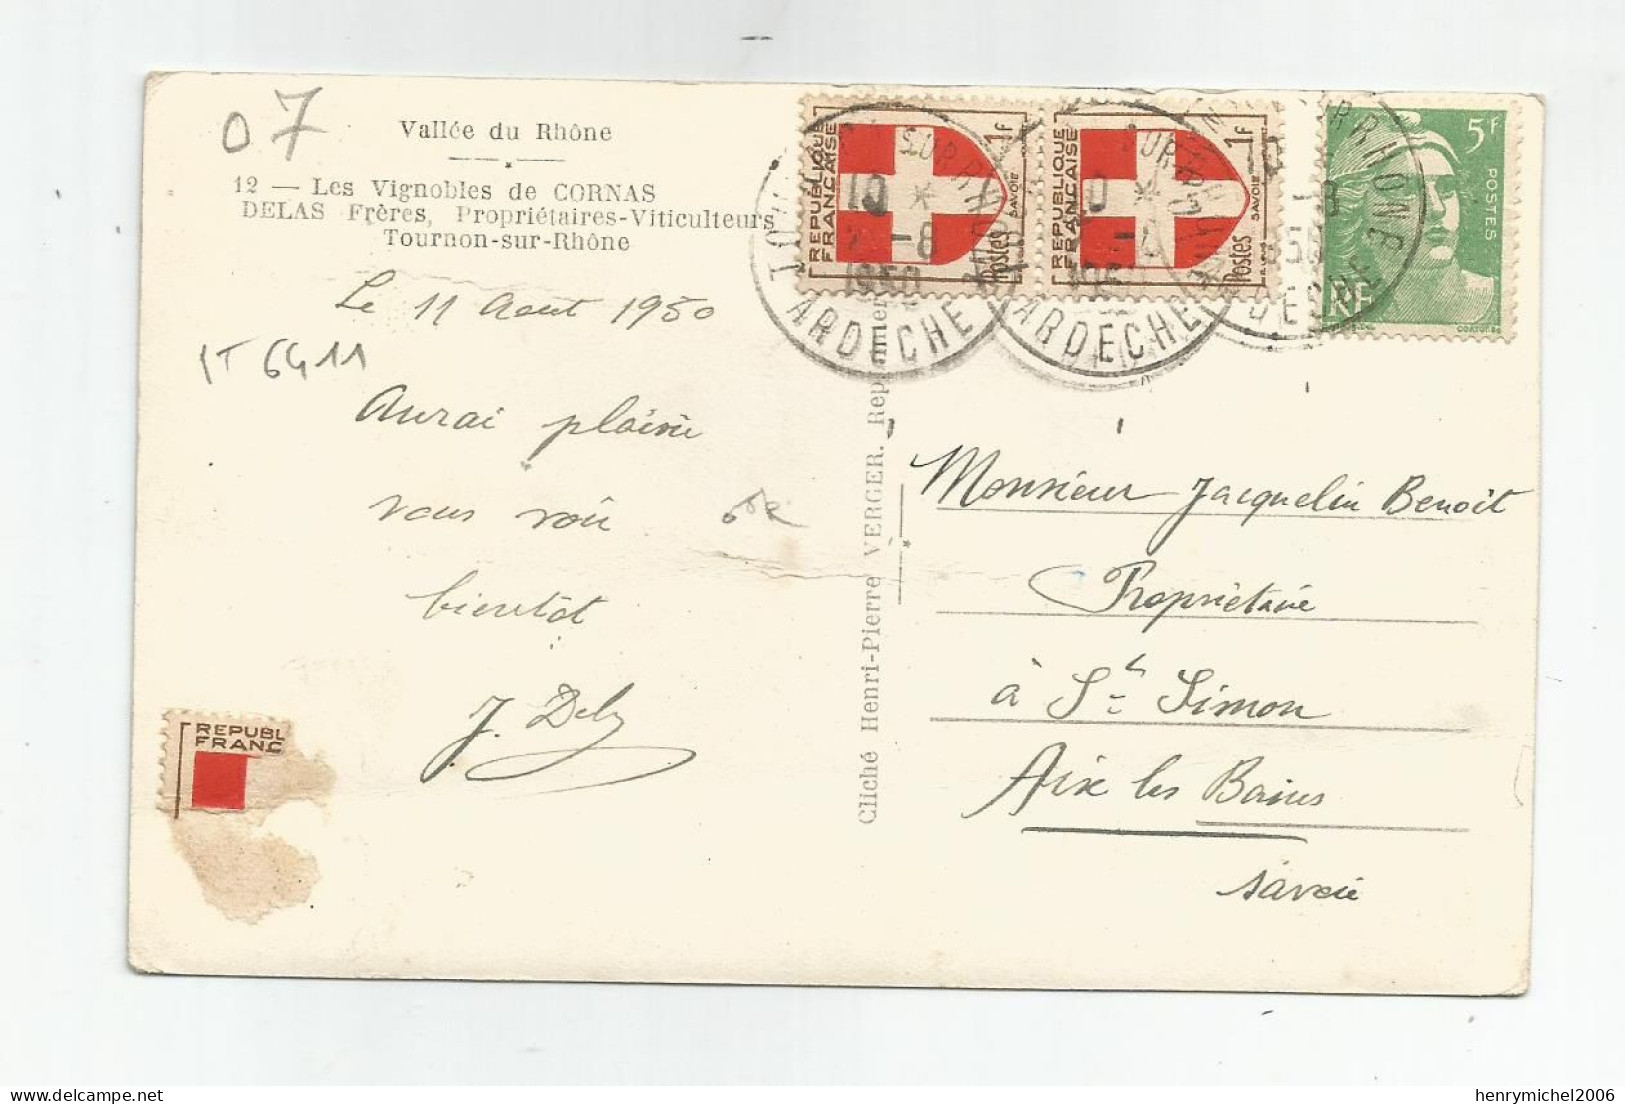 07
Vallée du Rhône
12 — Les Vignobles de CORNAS
DELAS Frères, Propriétaires-Viticulteurs
Tournon-sur-Rhône
Le 11 Aout 1950
IT 6411
Aurai plaisir
vous voir
bientôt
J. Delas
REPUBL
FRANC
Cliché Henri-Pierre VERGER. Rep
REPUBLIQUE
FRANÇAISE
1F
SAVOIE
Postes
REPUBLIQUE
FRANÇAISE
1F
SAVOIE
Postes
5F
POSTES
RF
SUR RHONE
10 *
-8
1950
ARDECHE
ARDECHE
Monsieur Jacquelin Benoit
Propriétaire
à St Simon
Aix les Bains
Savoie
henrymichel2006